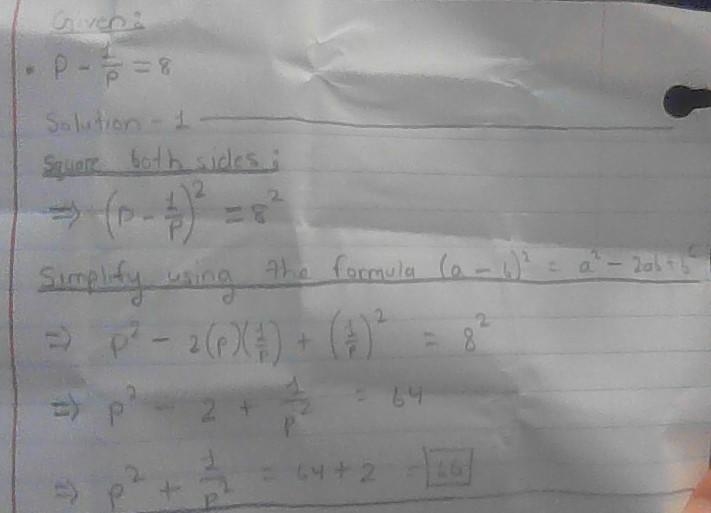 Given:
• P - 1/P = 8
Solution - 1
Square both sides:
⇒ (P - 1/P)² = 8²
Simplify using the formula (a - b)² = a² - 2ab + b²
⇒ P² - 2(P)(1/P) + (1/P)² = 8²
⇒ P² - 2 + 1/P² = 64
⇒ P² + 1/P² = 64 + 2 = 66